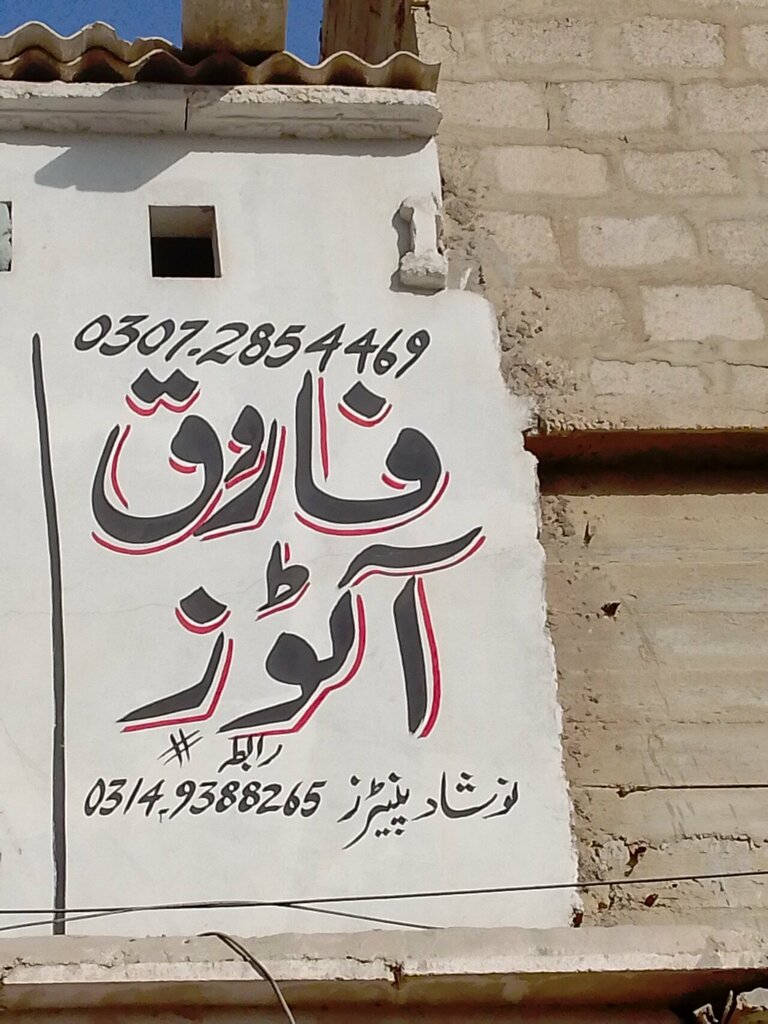 0307-2854469
فاروق
آٹوز
رابطہ #
نوشاد پینٹرز 0314-9388265